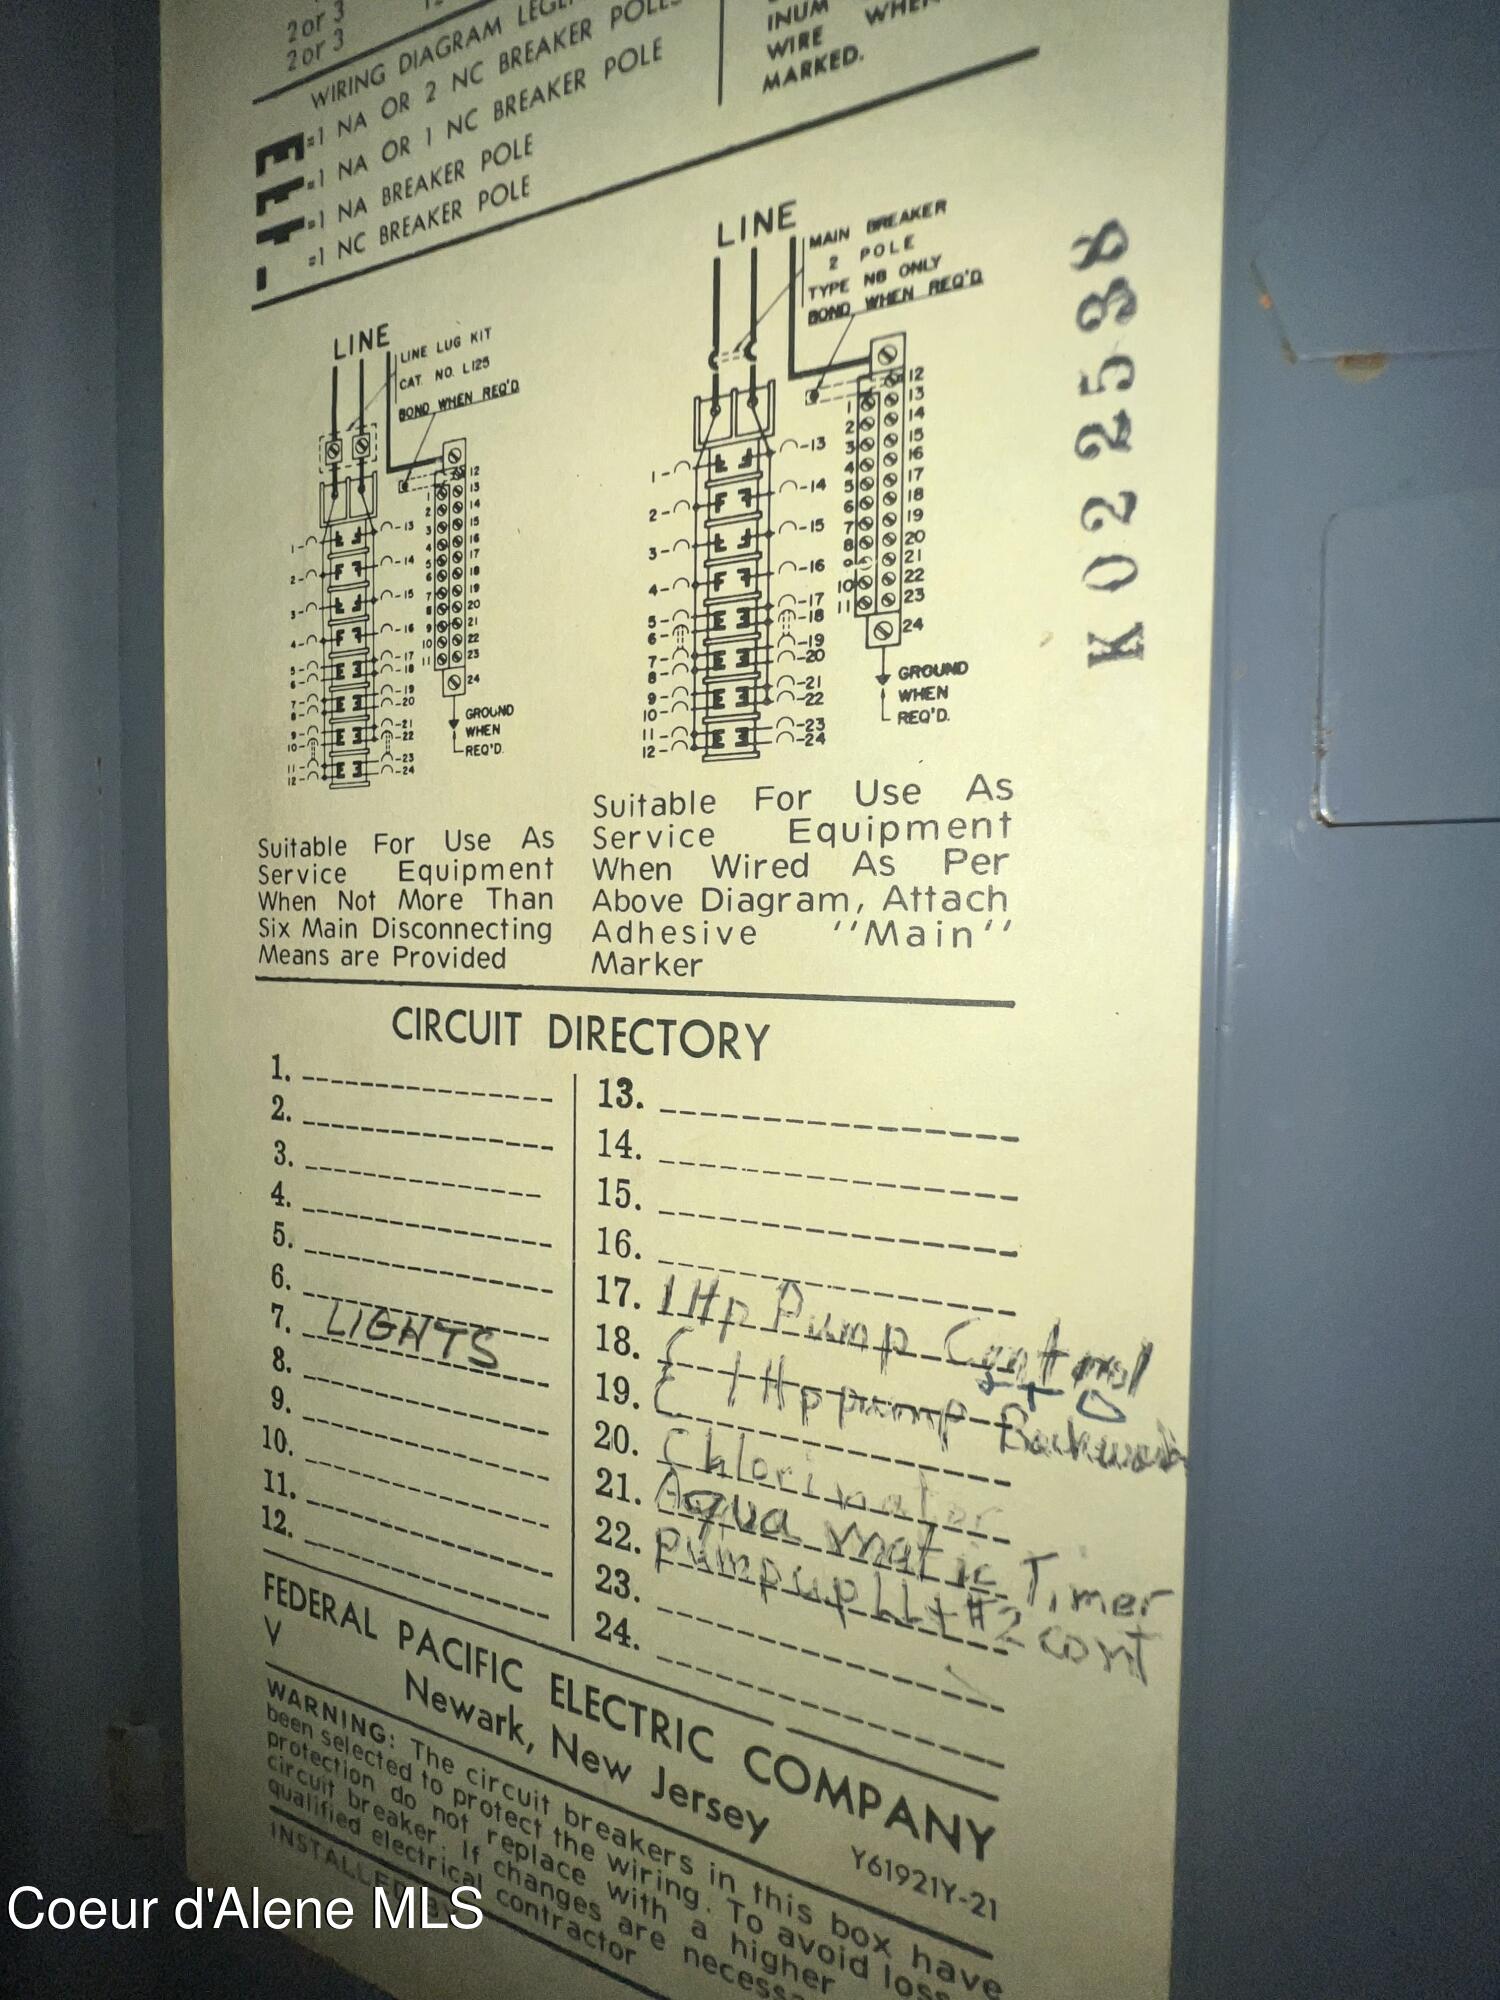 2 or 3
2 or 3
WIRING DIAGRAM
=1 NA OR 2 NC BREAKER POLES
=1 NA OR 1 NC BREAKER POLE
=1 NA BREAKER POLE
=1 NC BREAKER POLE
INUM
WIRE WHEN
MARKED.
LINE
LINE LUG KIT
CAT. NO. L125
BOND WHEN REQ'D
LINE
MAIN BREAKER
2 POLE
TYPE NB ONLY
BOND WHEN REQ'D
K022538
GROUND
WHEN
REQ'D.
GROUND
WHEN
REQ'D.
Suitable For Use As
Service Equipment
When Not More Than
Six Main Disconnecting
Means are Provided
Suitable For Use As
Service Equipment
When Wired As Per
Above Diagram, Attach
Adhesive "Main"
Marker
CIRCUIT DIRECTORY
1.
2.
3.
4.
5.
6.
7. LIGHTS
8.
9.
10.
11.
12.
13.
14.
15.
16.
17. 1 Hp Pump Control
18.
19. 1 Hp pump
20. Chlorinator
21. Aqua matic Timer
22. #2 cont
23.
24.
FEDERAL PACIFIC ELECTRIC COMPANY
V
Newark, New Jersey
Y61921Y-21
WARNING: The circuit breakers in this box have
been selected to protect the wiring. To avoid loss
protection do not replace with a higher
circuit breaker. If changes are necessa
qualified electrical contractor
INSTALLED BY
Coeur d'Alene MLS